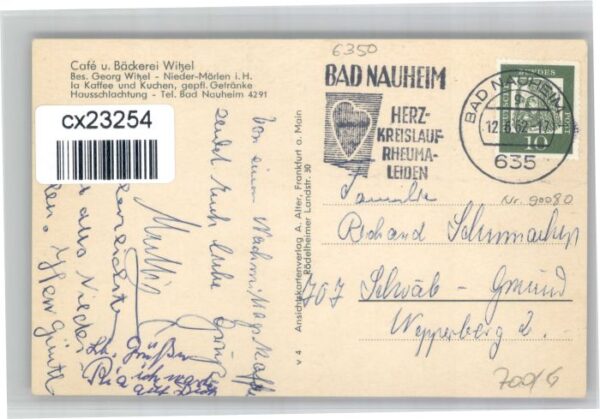 Café u. Bäckerei Witzel
Bes. Georg Witzel - Nieder-Mörlen i. H.
Ia Kaffee und Kuchen, gepfl. Getränke
Hausschlachtung - Tel. Bad Nauheim 4291
cx23254
Von einem Nachmittags Kaffee
sendet Euch liebe Grüße
Mutti
aus Nieder-
Lb. Grüße
Ria ich warte
auf Dich
v 4 Ansichtskartenverlag A. Alter, Frankfurt a. Main
Rödelheimer Landstr. 30
6350
BAD NAUHEIM
HERZ-
KREISLAUF-
RHEUMA-
LEIDEN
BAD NAUHEIM
12.6.62-17
635
10
Nr. 90080
Familie
Richard Schumacher
707 Schwäb-Gmünd
Wepperberg 2.